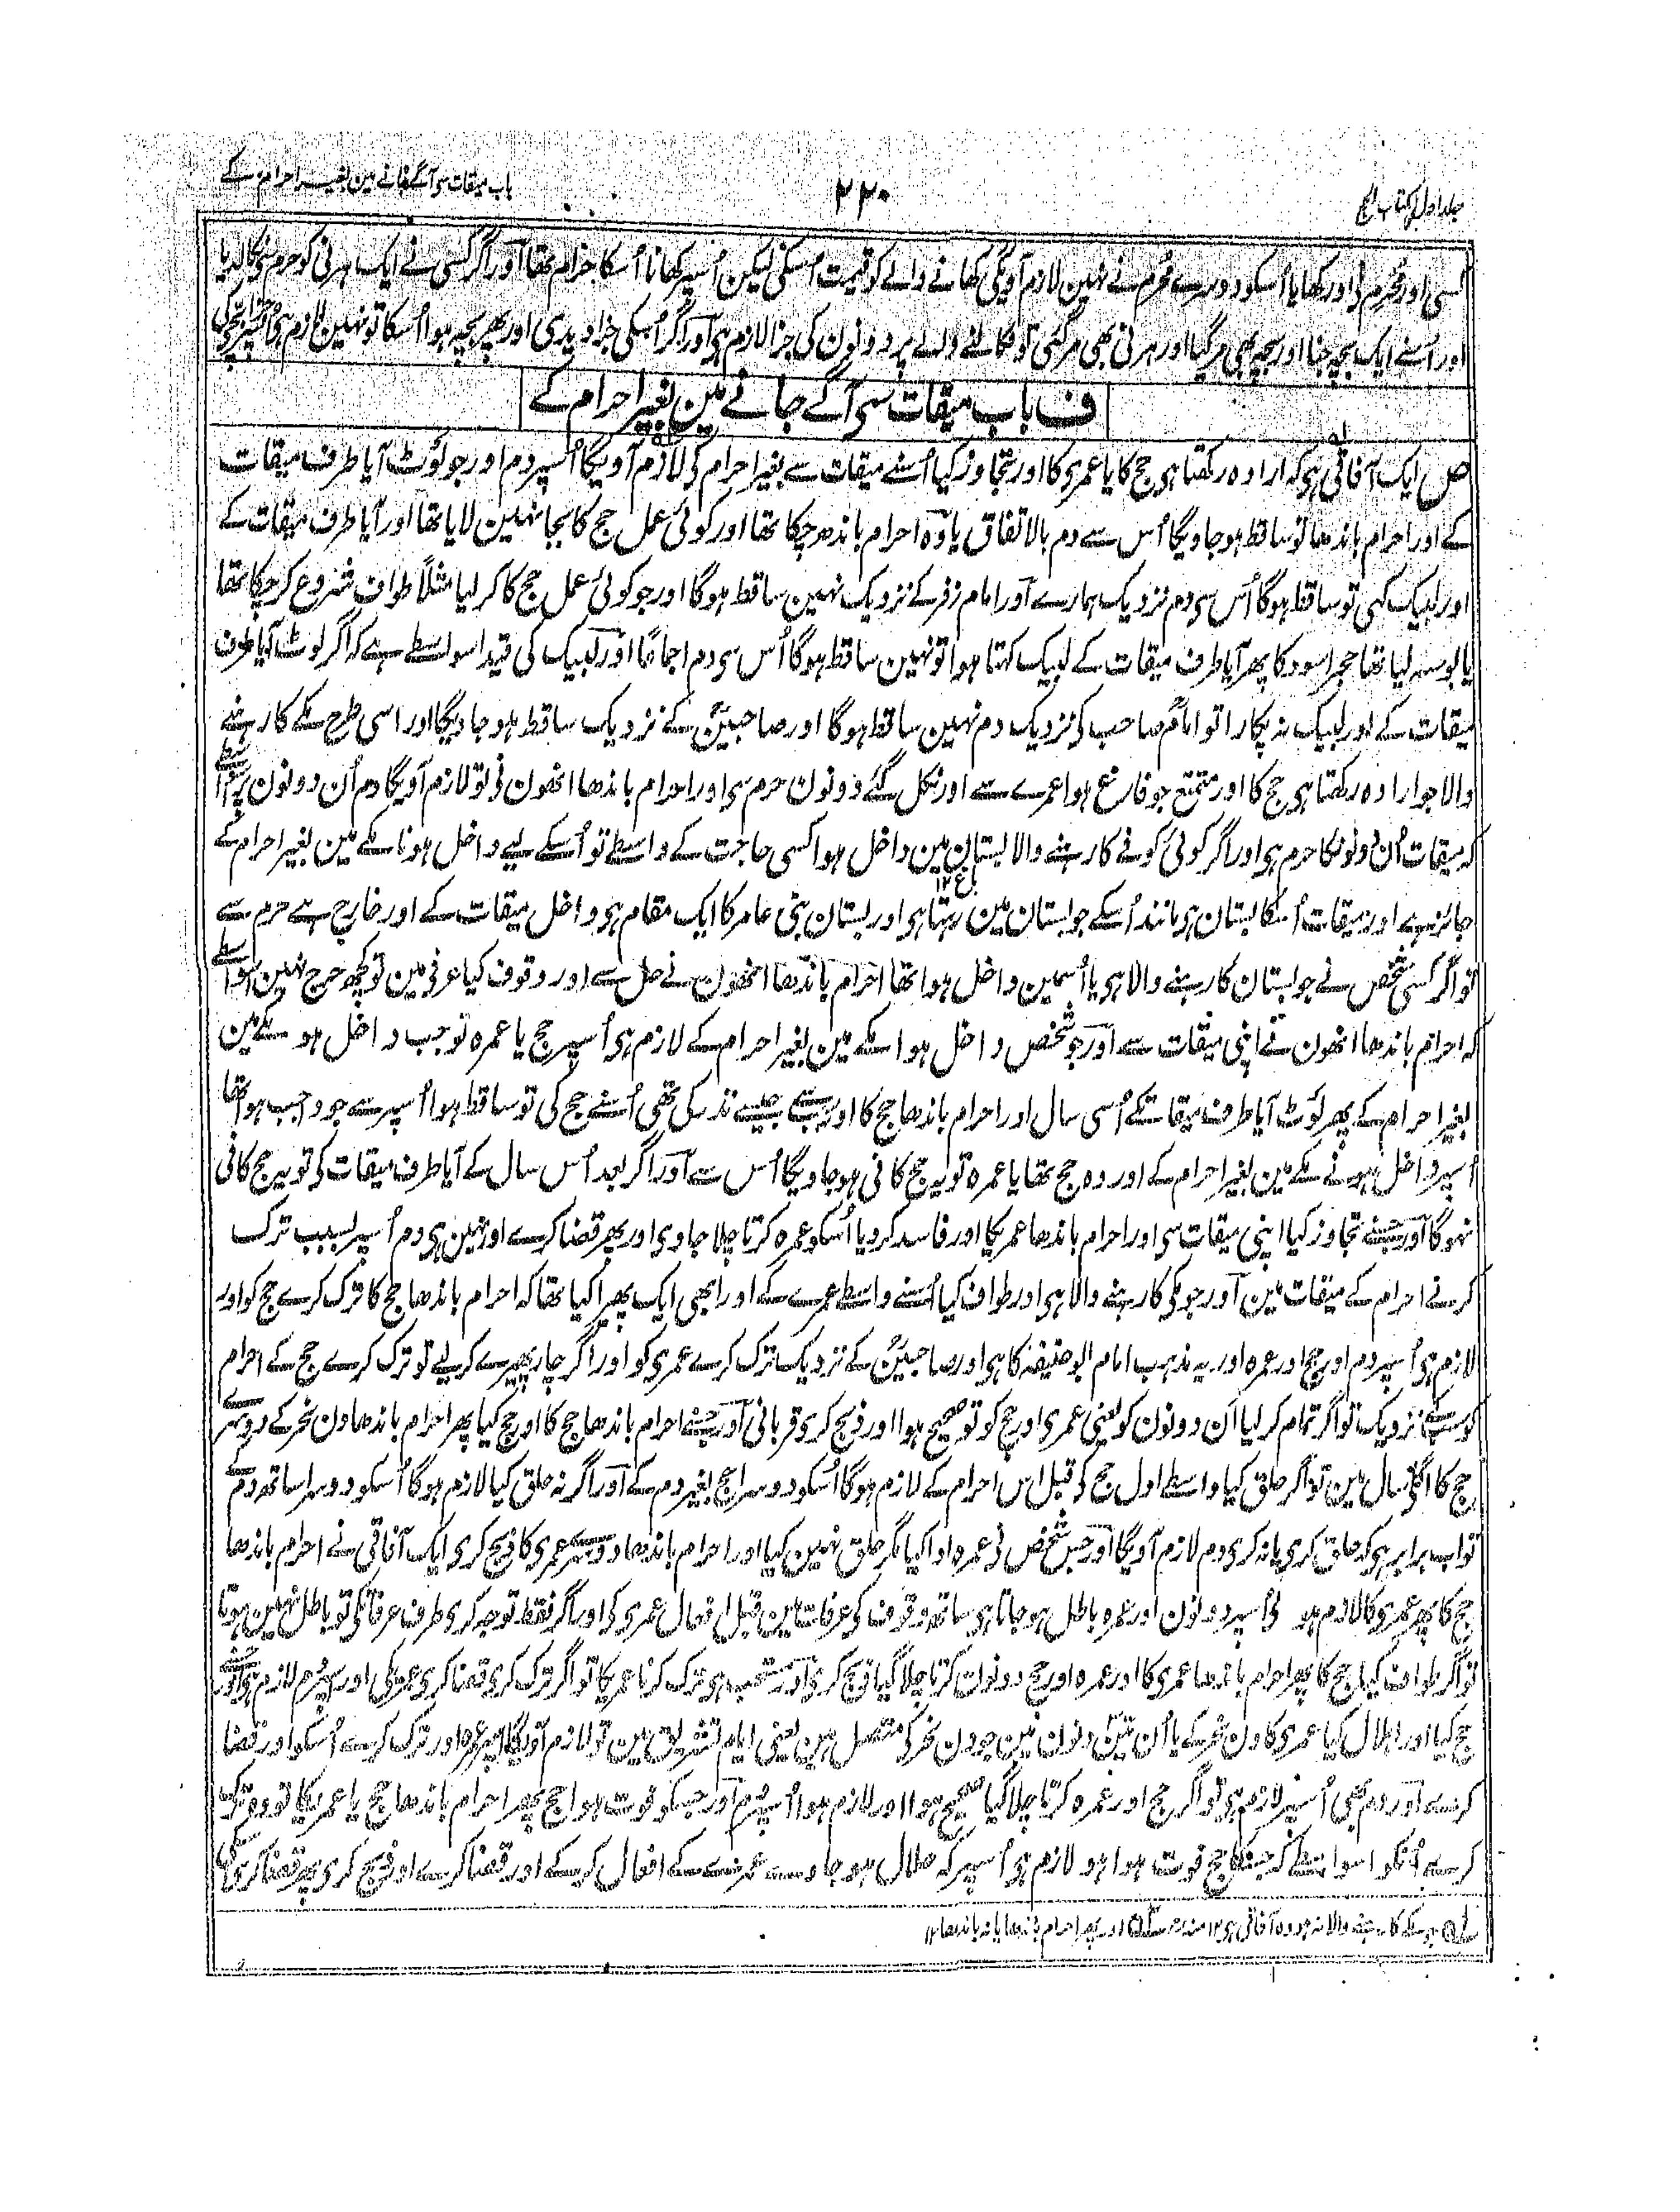 جلد اول کتاب الحج
۲۲۰
باب میقات سی آگے جانے مین بغیر احرام کے
کسی اور محرم نی اور کھایا اُسکو دوسرے محرم نے نہین لازم آویگی کھانے والے کو قیمت اُسکی لیکن اُسپر کھانا اُسکا حرام تھا اور اگر کسی نے ایک ہرنی کو حرم سی نکالدیا
اور اُسنے ایک بچہ جنا اور بچہ بھی مر گیا اور ہرنی بھی مر گئی تو نکالنے والے پر دونون کی جزا لازم ہی اور اگر اُسکی جزا دیدی اور پھر بچہ ہوا اُسکا تو نہین لازم ہی اُسپر جزا بچی کی
ف باب میقات سی آگے جانے مین بغیر احرام کے
ص ایک آفاقی ہی کہ ارادہ رکھتا ہی حج کا یا عمری کا اور تجاوز کیا اُسنے میقات سے بغیر احرام کی لازم آویگا اُسپر دم اور جو لوٹ آیا طرف میقات
کے اور احرام باندھا تو ساقط ہو جاویگا اُس سے دم بالاتفاق یا وہ احرام باندھ چکا تھا اور کوئی عمل حج کا بجا نہین لایا تھا اور آیا طرف میقات کے
اور لبیک کہی تو ساقط ہوگا اُس سی دم نزدیک ہمارے اور امام زفر کے نزدیک نہین ساقط ہوگا اور جو کوئی عمل حج کا کر لیا مثلاً طواف شروع کر چکا تھا
یا بوسہ لیا تھا حجر اسود کا پھر آیا طرف میقات کے لبیک کہتا ہوا تو نہین ساقط ہوگا اُس سی دم اجماعًا اور لبیک کی قید اسواسطے ہے کہ اگر لوٹ آیا طرف
میقات کے اور لبیک نہ پکارا تو امام صاحب کی نزدیک دم نہین ساقط ہوگا اور صاحبین کے نزدیک ساقط ہو جاویگا اور اسی طرح مکے کا رہنے
والا جو ارادہ رکھتا ہی حج کا اور متمتع جو فارغ ہوا عمرے سے اور نکل گئے دونون حرم سی اور احرام باندھا انھون نی تو لازم آویگا دم اُن دونون پر اسواسطے
کہ میقات اُن دونونکا حرم ہی اور اگر کوئی کوفے کا رہنے والا بستان مین داخل ہوا کسی حاجت کے واسطے تو اُسکے لیے داخل ہونا مکے مین بغیر احرام کے
جائز ہے اور میقات اُسکا بستان ہی مانند اُسکے جو بستان مین رہتا ہی اور بستان بنی عامر کا ایک مقام ہی داخل میقات کے اور خارج ہے حرم سے
تو اگر کسی شخص نے جو بستان کا رہنے والا ہی یا اُسمین داخل ہوا تھا احرام باندھا انھون نے حل سے اور وقوف کیا عرفی مین تو کچھ حرج نہین اسواسطے
کہ احرام باندھا انھون نے اپنی میقات سے اور جو شخص داخل ہوا مکے مین بغیر احرام کے لازم ہی اُسپر حج یا عمرہ تو جب داخل ہو مکے مین
بغیر احرام کے پھر لوٹ آیا طرف میقات کے اُسی سال اور احرام باندھا حج کا اور جیسے نذر کی تھی اُسنے حج کی تو ساقط ہوا اُسپر سے جو واجب ہوا تھا
اُسپر داخل ہونے مکے مین بغیر احرام کے اور وہ حج تھا یا عمرہ تو یہ حج کافی ہو جاویگا اُس سے اور اگر بعد اُس سال کے آیا طرف میقات کی تو یہ حج کافی
نہوگا اور جسنے تجاوز کیا اپنی میقات سی اور احرام باندھا عمریکا اور فاسد کر دیا اُسکو عمرہ کرتا چلا جاوی اور پھر قضا کرے اور نہین ہی دم اُسپر بسبب ترک
کرنے احرام کے میقات مین اور جو مکی کا رہنے والا ہی اور طواف کیا اُسنے واسطے عمرے کے اور ابھی ایک پھیرا کیا تھا کہ احرام باندھا حج کا ترک کرے حج کو اور
لازم ہی اُسپر دم اور حج اور عمرہ اور یہ مذہب امام ابو حنیفہ کا ہی اور صاحبین کے نزدیک ترک کرے عمری کو اور اگر چار پھیرے کر لیے تو ترک کرے حج کے احرام
کو سبکے نزدیک تو اگر تمام کر لیا ان دونون کو یعنی عمری اور حج کو تو صحیح ہوا اور ذبح کری قربانی اور جسنے احرام باندھا حج کا اور حج کیا پھر احرام باندھا دن نحر کے دوسرے
حج کا اگلے سال مین تو اگر حلق کیا واسطے اول حج کو قبل اس احرام کے لازم ہوگا اُسکو دوسرا حج بغیر دم کے اور اگر نہ حلق کیا لازم ہوگا اُسکو دوسرا ساتھ دم کے
تو اب برابر ہی کہ حلق کری یا نہ کری دم لازم آویگا اور جس شخص نی عمرہ ادا کیا مگر حلق نہین کیا اور احرام باندھا دوسرے عمری کا ذبح کری ایک آفاقی نے احرام باندھا
حج کا پھر عمری کا لازم ہو اُسپر دونون اور عمرہ باطل ہو جاتا ہی ساتھ وقوف کی عرفات مین قبل افعال عمری کی اور اگر فقط توجہ کری طرف عرفات کی تو باطل نہین ہوتا
تو اگر طواف کیا حج کا پھر احرام باندھا عمری کا اور عمرہ اور حج دونون کرتا چلا گیا ذبح کری اور مستحب ہی ترک کرنا عمریکا تو اگر ترک کری قضا کری عمرہ کی اور دم لازم ہی اور جسنے
حج کیا اور اہلال کیا عمری کا دن نحر کے یا اُن تین دنون مین جو دن نحر کی متصل ہین یعنی ایام تشریق مین تو لازم آویگا اُسپر عمرہ اور ترک کرے اُسکو اور قضا
کرے اور دم بھی اُسپر لازم ہی تو اگر حج اور عمرہ کرتا چلا گیا صحیح ہوا اور لازم ہوا اُسپر دم اور جسکو فوت ہوا حج پھر احرام باندھا حج یا عمریکا تو وہ ترک
کرے اُنکو اسواسطے کہ جسکا حج فوت ہوا ہو لازم ہی اُسپر کہ حلال ہو جاوے عمرے کے افعال کرکے اور قضا کرے اور ذبح کری پھر قضا کری
جو مکے کا رہنے والا نہ ہو وہ آفاقی ہی ۱۲ منہ اور پھر احرام باندھا یا نہ باندھا ۱۲